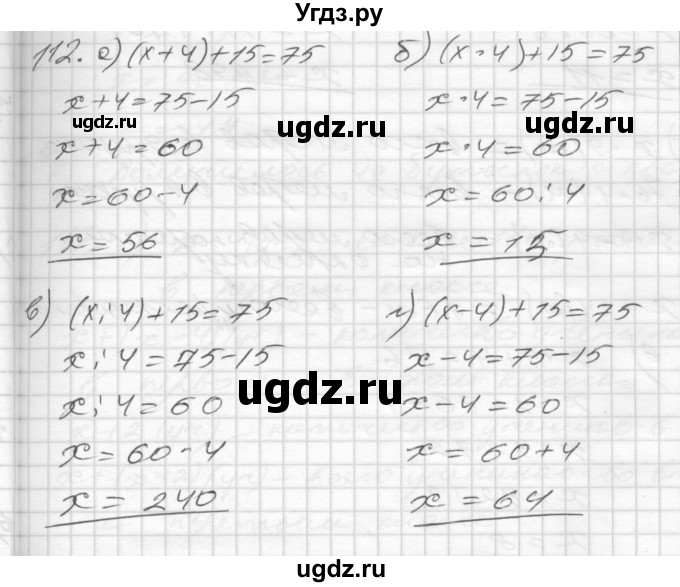 Угдз.ру
112. а) (x+4)+15=75
x+4=75-15
ugdz.ru
x+4=60
x=60-4
x=56
б) (x·4)+15=75
x·4=75-15
ugdz.ru
ugdz.ru
x·4=60
x=60:4
x=15
в) (x:4)+15=75
x:4=75-15
ugdz.ru
x:4=60
x=60·4
x=240
г) (x-4)+15=75
x-4=75-15
ugdz.ru
x-4=60
x=60+4
x=64
ugdz.ru